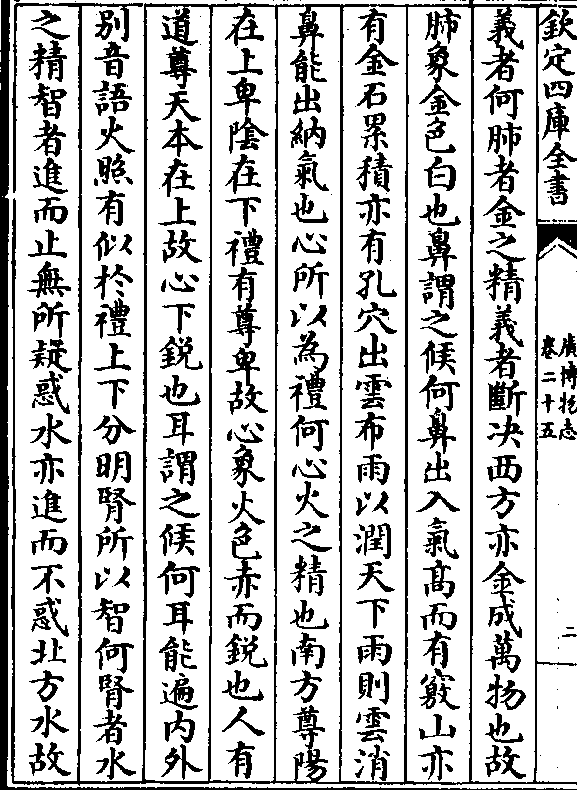 欽定四庫全書
廣博物志
卷二十五
二
義者何肺者金之精義者斷決西方亦金成萬物也故
肺象金色白也鼻謂之候何鼻出入氣高而有竅山亦
有金石累積亦有孔穴出雲布雨以潤天下雨則雲消
鼻能出納氣也心所以為禮何心火之精也南方尊陽
在上卑陰在下禮有尊卑故心象火色赤而鋭也人有
道尊天本在上故心下鋭也耳謂之候何耳能遍内外
别音語火照有似於禮上下分明腎所以智何腎者水
之精智者進而止無所疑惑水亦進而不惑北方水故